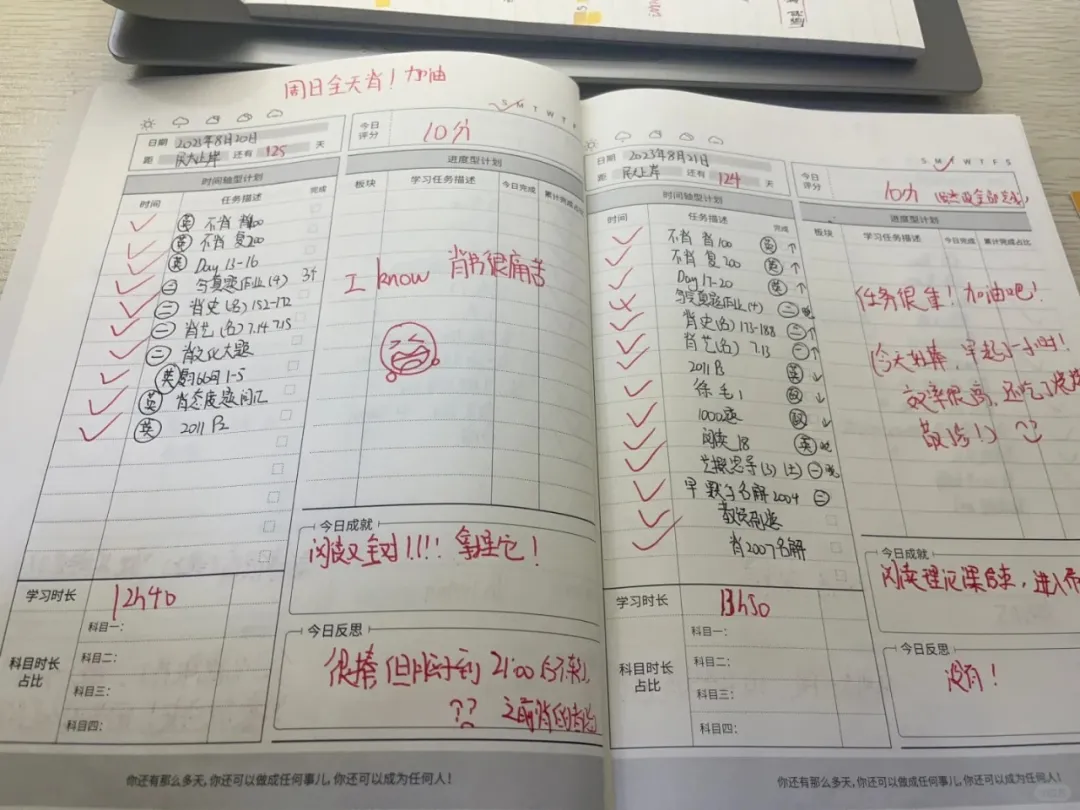 周日全天肖！加油
S M T W T F
日期 2023年8月20日
距 民大上岸 还有 125 天
今日评分 10分
时间轴型计划
时间 任务描述 完成
英 不肖 肖100
英 不肖 复200
英 Day 13-16
二 写真题作业(4) 34
二 肖史(名)152-172
一 肖艺(名)7.14 7.15
二 肖文化大题
英 1-5
英
英 2011 B
进度型计划
板块 学习任务描述 今日完成 累计完成占比
I know 肖书很痛苦
今日成就
阅读又全对!!!! 拿捏它！
今日反思
很棒 但 到 21:00
?? 之前肖的
学习时长 12h40
科目时长占比
科目一：
科目二：
科目三：
科目四：
你还有那么多天，你还可以做成任何事儿，你还可以成为任何人！
S M T W T F S
日期 2023年8月21日
距 民大上岸 还有 124 天
今日评分 10分
时间轴型计划
时间 任务描述 完成
不肖 肖100 英 ↑
不肖 复200 英 ↑
Day 17-20 英 ↑
写真题作业(4) 二 晚
肖史(名)173-188 二 ↑
肖艺(名) 7.13 一 ↑
2011 B 英 ↓
徐毛1 政 ↓
1000题 政 ↓
阅读 18 英 晚
(3) 一 晚
早 默写名解2004 二
刷题
肖2007名解
进度型计划
板块 学习任务描述 今日完成 累计完成占比
任务很重！加油吧！
(今天好棒，早起了一小时！
效率很高，还吃了
今日成就
阅读理论课结束，进入
今日反思
没有！
学习时长 13h50
科目时长占比
科目一：
科目二：
科目三：
科目四：
你还有那么多天，你还可以做成任何事儿，你还可以成为任何人！